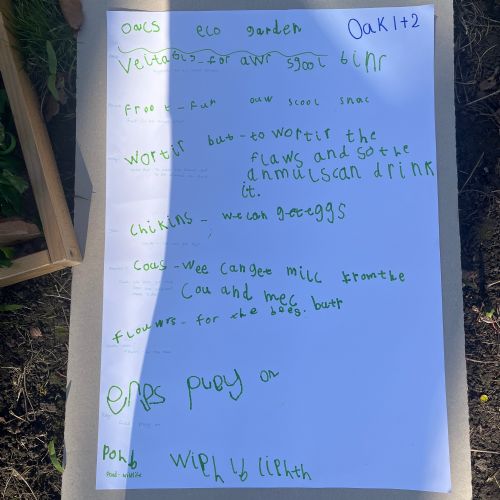 oacs eco garden Oak 1+2
veltabls-for awr sgool binr
froot-fur ouw scool snac
wortir but-to wortir the
flaws and so the
anmulscan drink
it.
chikins - we can get eggs
cous-wee can get milc fromthe
cou and mec butr
flouwrs-for the bees.
play on
ponb
Pond-wildlife